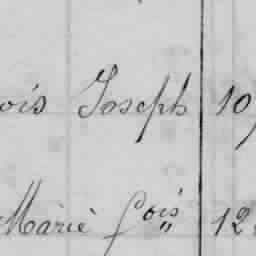 ois Joseph 10
Marie fois 12